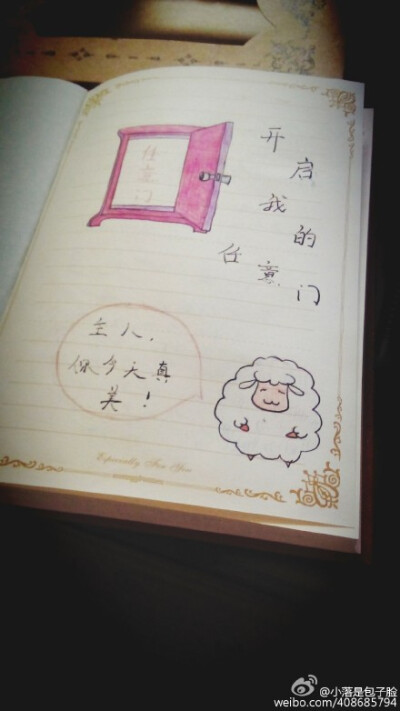 任意门
开启我的
任意门
主人,
你今天真
美!
Especially For You
@小落是包子脸
weibo.com/408685794